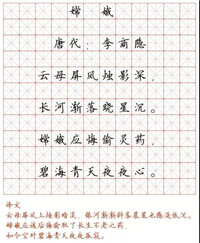 嫦娥
唐代:李商隐
云母屏风烛影深,
长河渐落晓星沉。
嫦娥应悔偷灵药,
碧海青天夜夜心。
译文
云母屏风上烛影暗淡,银河渐渐斜落晨星也隐没低沉。
嫦娥应该后悔偷取了长生不老之药,
如今空对碧海青天夜夜孤寂。